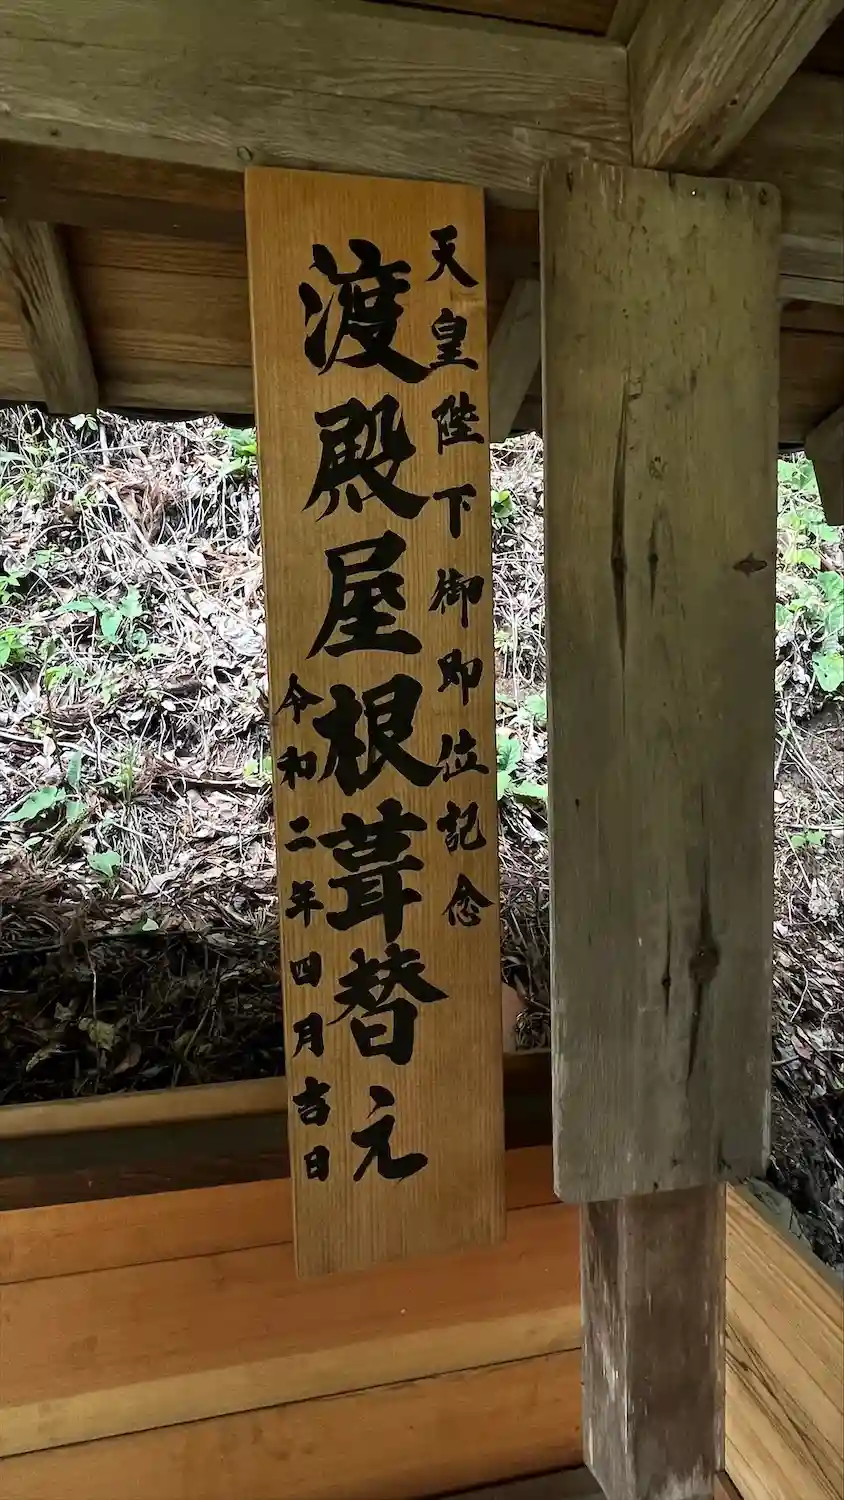 天皇陛下御即位記念
渡殿屋根葺替え
令和二年四月吉日